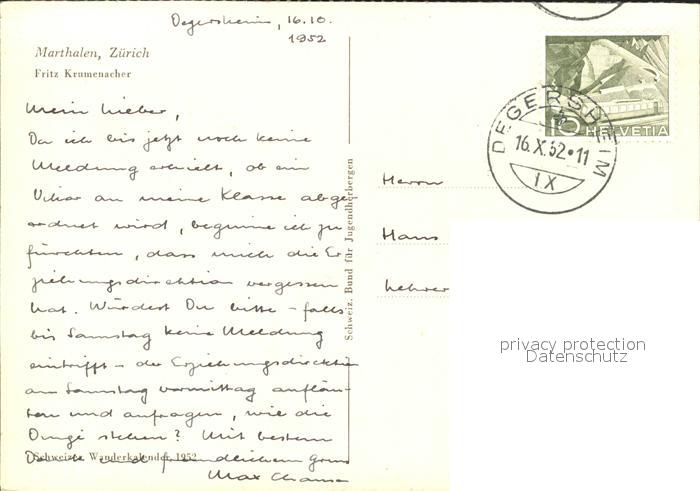 Degersheim, 16.10.
1952
Marthalen, Zürich
Fritz Krumenacher
Mein Lieber,
Da ich bis jetzt noch keine
Meldung erhielt, ob ein
Vikar an meine Klasse abge
ordnet wird, beginne ich zu
fürchten, dass mich die Er
ziehungsdirektion vergessen
hat. Würdest Du bitte – falls
bis Samstag keine Meldung
eintrifft – der Erziehungsdirektion
am Samstag vormittag aufläu-
ten und anfragen, wie die
Dinge stehen? Mit bestem
Schweizer Wanderkalender 1952
Dank und freundlichem Gruss
Max
Schweiz. Bund für Jugendherbergen
HELVETIA
10
DEGERSHEIM
16.X.52•11
IX
Herrn
Hans
Lehrer
privacy protection
Datenschutz